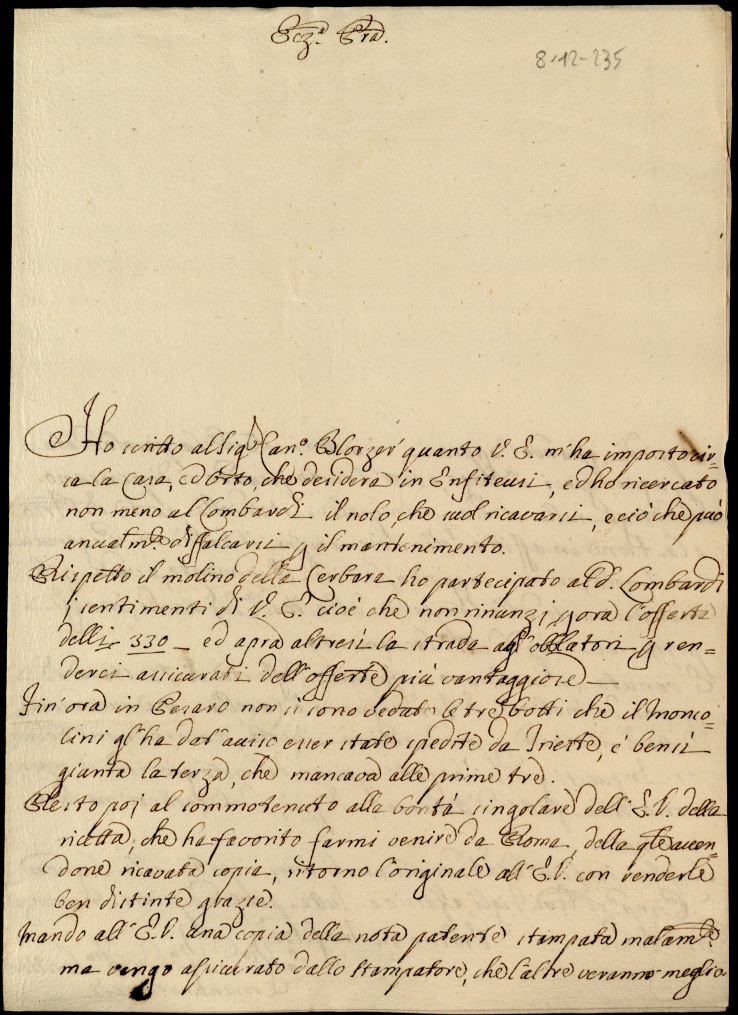 Ecz.ª Prã.
8-12-235
Ho scritto al Sig.r Can.º quanto V. E. m'ha imposto cir=
ca la Casa, ed Orto, che desidera in Enfiteusi, ed ho ricercato
non meno al Lombardi il nolo, che suol ricavarsi, e ciò che può
anualm.te diffalcarsi p il mantenimento.
Rispetto il molino della Cerbara ho partecipato al d. Lombardi
i sentimenti di V. E. cioè che non rinunzi p ora l'offerta
delli 330 _ ed apra altresì la strada agl'obblatori p ren=
derci assicurati dell'offerte più vantaggiose _
Fin'ora in Pesaro non si sono vedute le tre botti che il Monco=
lini gl'ha dat'auiso esser state spedite da Trieste, è bensì
gianta la terza, che mancava alle prime tre.
Resto poi al sommo tenuto alla bontà singolare dell'E. V. della
ricetta, che ha favorito farmi venire da Roma, della qle aven=
done ricavata copia, ritorno l'originale all'E. V. con renderle
ben distinte grazie.
Mando all'E. V. una copia della nota patente stampata malam.te
ma vengo assicurato dallo stampatore, che l'altre veranno meglio